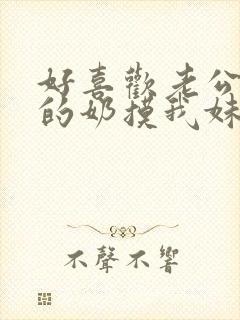 好喜歡老公
的奶摸我妹
不聲不響